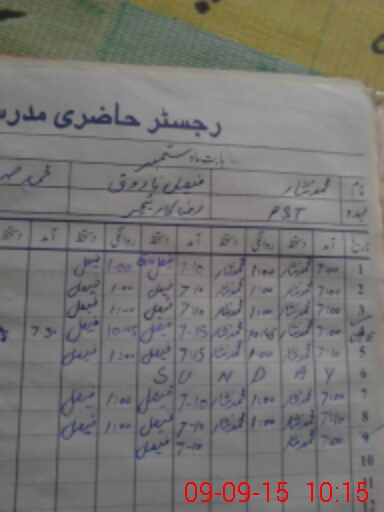 رجسٹر حاضری مدرسہ
بابت ماہ ستمبر
نام محمد نثار فیصل فاروق محمد
عہدہ PST
تاریخ آمد دستخط روانگی دستخط آمد دستخط روانگی دستخط آمد دستخط
1 7:00 محمد نثار 1:00 محمد نثار 7-10 فیصل 1:00 فیصل
2 7:00 محمد نثار 1:00 محمد نثار 7:10 فیصل 1:00 فیصل
3 7:00 محمد نثار 1:00 محمد نثار 7:10 فیصل 1:00 فیصل
7:00 محمد نثار 10:45 محمد نثار 7-15 فیصل 10:45 فیصل 7:30
5 7:10 محمد نثار 1:00 محمد نثار 7:15 فیصل 1:00 فیصل
6 S U N D A Y
7 7:00 محمد نثار 1:00 محمد نثار 7-10 فیصل 1:00 فیصل
8 7:10 محمد نثار 1:00 محمد نثار 7-10 فیصل 1:00 فیصل
9 7:00 محمد نثار 7-10 فیصل
10
11
12
09-09-15 10:15